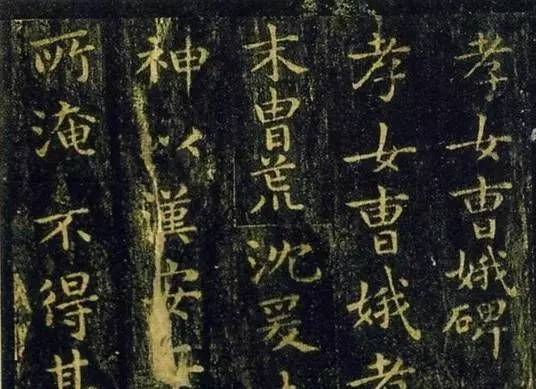 孝女曹娥碑
孝女曹娥者
末胄荒沈爰
神以漢安二
所淹不得其